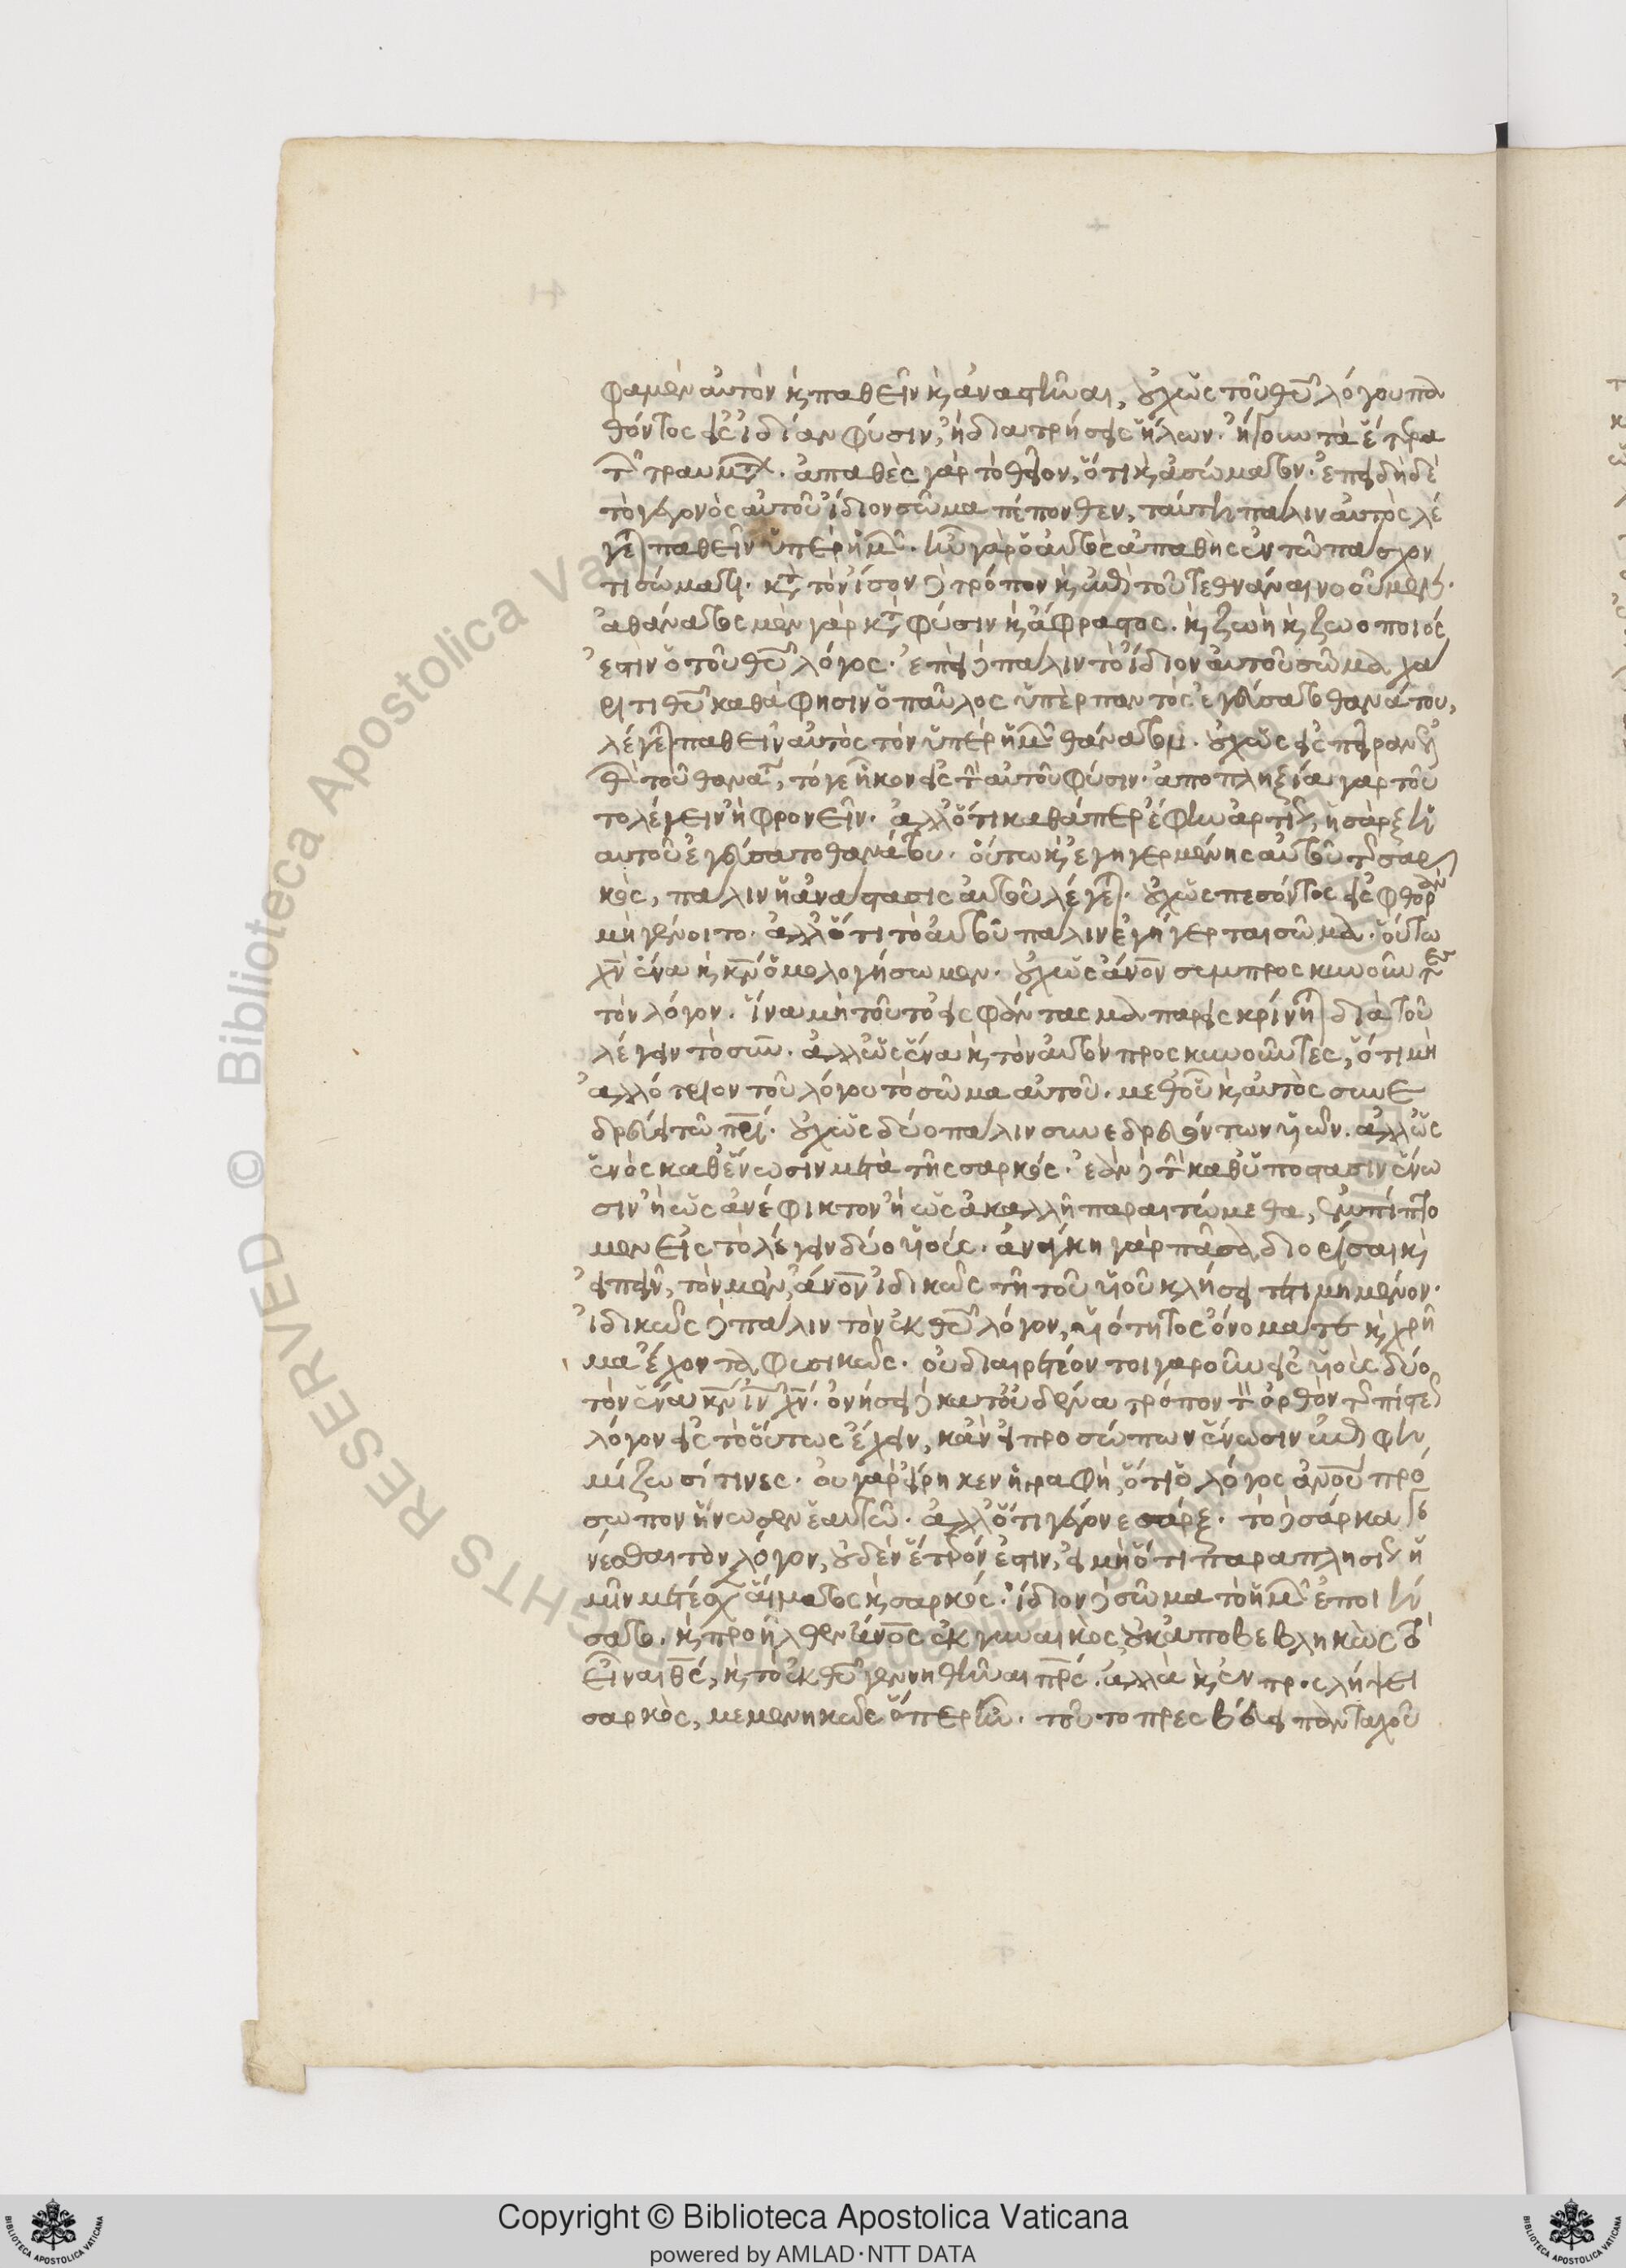 φαμὲν αὐτὸν κ παθεῖν κ ἀναστῆναι, οὐχ ὡς τοῦ θυ λόγου πα
θόντος εἰς ἰδίαν φύσιν, ἢ διατρήσεις ἥλων. ἤγουν τὰ ἕτερα
τῶν τραυμάτων. ἀπαθὲς γὰρ τὸ θεῖον, ὅτι κ ἀσώματον. ἐπειδὴ δὲ
τὸ γεγονὸς αὐτοῦ ἴδιον σῶμα πέπονθεν, ταύτη πάλιν αὐτὸς λέ
γεται παθεῖν ὑπὲρ ἡμῶν. ἦν γὰρ ὁ αὐτὸς ἀπαθὴς ἐν τῶ πάσχον
τι σώματι. κατὰ τὸν ἴσον δὲ τρόπον κ ἐπὶ τοῦ τεθνάναι νοοῦμεν.
ἀθάνατος μὲν γὰρ κατὰ φύσιν κ ἄφραστος. κ ζωὴ κ ζωοποιός
ἐστιν ὁ τοῦ θυ λόγος. ἐπεὶ δὲ πάλιν τὸ ἴδιον αὐτοῦ σῶμα χά
ριτι θυ καθά φησιν ὁ παῦλος ὑπὲρ παντὸς ἐγεύσατο θανάτου,
λέγεται παθεῖν αὐτὸς τὸν ὑπὲρ ἡμῶν θάνατον. οὐχ ὡς εἰς πεῖραν ἐλ
θὼν τοῦ θανάτου, τό γε ἧκον εἰς τὴν αὐτοῦ φύσιν. ἀποπληξία γὰρ τοῦ
το λέγειν ἢ φρονεῖν. ἀλλ' ὅτι καθάπερ ἔφην ἀρτίως, ἡ σὰρξ ἡ
αυτοῦ ἐγεύσατο θανάτου. οὕτω κ ἐγηγερμένης αὐτοῦ τῆς σαρ
κὸς, πάλιν ἡ ἀνάστασις αὐτοῦ λέγεται. οὐχ ὡς πεσόντος εἰς φθορὰν
μὴ γένοιτο. ἀλλ' ὅτι τὸ αὐτοῦ πάλιν ἐγήγερται σῶμα. οὕτω
χν ἕνα κ κν ὁμολογήσωμεν. οὐχ ὡς ἄνον συμπροσκυνοῦντες
τὸν λόγον. ἵνα μὴ τοῦτο εἰς φάντασμα παρεισκρίνηται διὰ τοῦ
λέγειν τὸ σύν. ἀλλ' ὡς ἕνα κ τὸν αὐτὸν προσκυνοῦντες, ὅτι μὴ
ἀλλότριον τοῦ λόγου τὸ σῶμα αὐτοῦ. μεθ' οὗ κ αὐτὸς συνε
δρεύει τῶ πρί. οὐχ ὡς δύο πάλιν συνεδρευόντων υἱῶν. ἀλλ' ὡς
ἑνὸς καθ' ἕνωσιν μετὰ τῆς σαρκός. ἐὰν δὲ τὴν καθ' ὑπόστασιν ἕνω
σιν ἢ ὡς ἀνέφικτον ἢ ὡς ἀκαλλῆ παραιτώμεθα, ἐμπίπτο
μεν εἰς τὸ λέγειν δύο υἱούς. ἀνάγκη γὰρ πᾶσα διορίσαι κ
εἰπεῖν, τὸν μὲν, ἄνον ἰδικῶς τῆ τοῦ υἱοῦ κλήσει τετιμημένον.
ἰδικῶς δὲ πάλιν τὸν ἐκ θυ λόγον, υἱότητος ὄνομά τε κ χρῆ
μα ἔχοντα φυσικῶς. οὐ διαιρετέον τοιγαροῦν εἰς υἱοὺς δύο
τὸν ἕνα κν ιν χν. ὀνήσει δὲ κατ' οὐδένα τρόπον τὸν ὀρθὸν τῆς πίστεως
λόγον εἰς τὸ οὕτως ἔχειν, κἂν εἰ προσώπων ἕνωσιν ἐπιφη
μίζωσί τινες. οὐ γὰρ εἴρηκεν ἡ γραφὴ, ὅτι ὁ λόγος ἀνου πρό
σωπον ἥνωσεν ἑαυτῶ. ἀλλ' ὅτι γέγονε σάρξ. τὸ δὲ σάρκα γε
νέσθαι τὸν λόγον, οὐδὲν ἕτερόν ἐστιν, εἰ μὴ ὅτι παραπλησίως ἡ
μῖν μετέσχεν αἵματος κ σαρκός. ἴδιον δὲ σῶμα τὸ ἡμῶν ἐποιή
σατο. κ προῆλθεν ἄνος ἐκ γυναικὸς οὐκ ἀποβεβληκὼς τὸ
εἶναι θς, κ τὸ ἐκ θυ γεννηθῆναι πρς. ἀλλὰ κ ἐν προσλήψει
σαρκὸς, μεμενηκὼς ὅπερ ἦν. τοῦτο πρεσβεύει πανταχοῦ